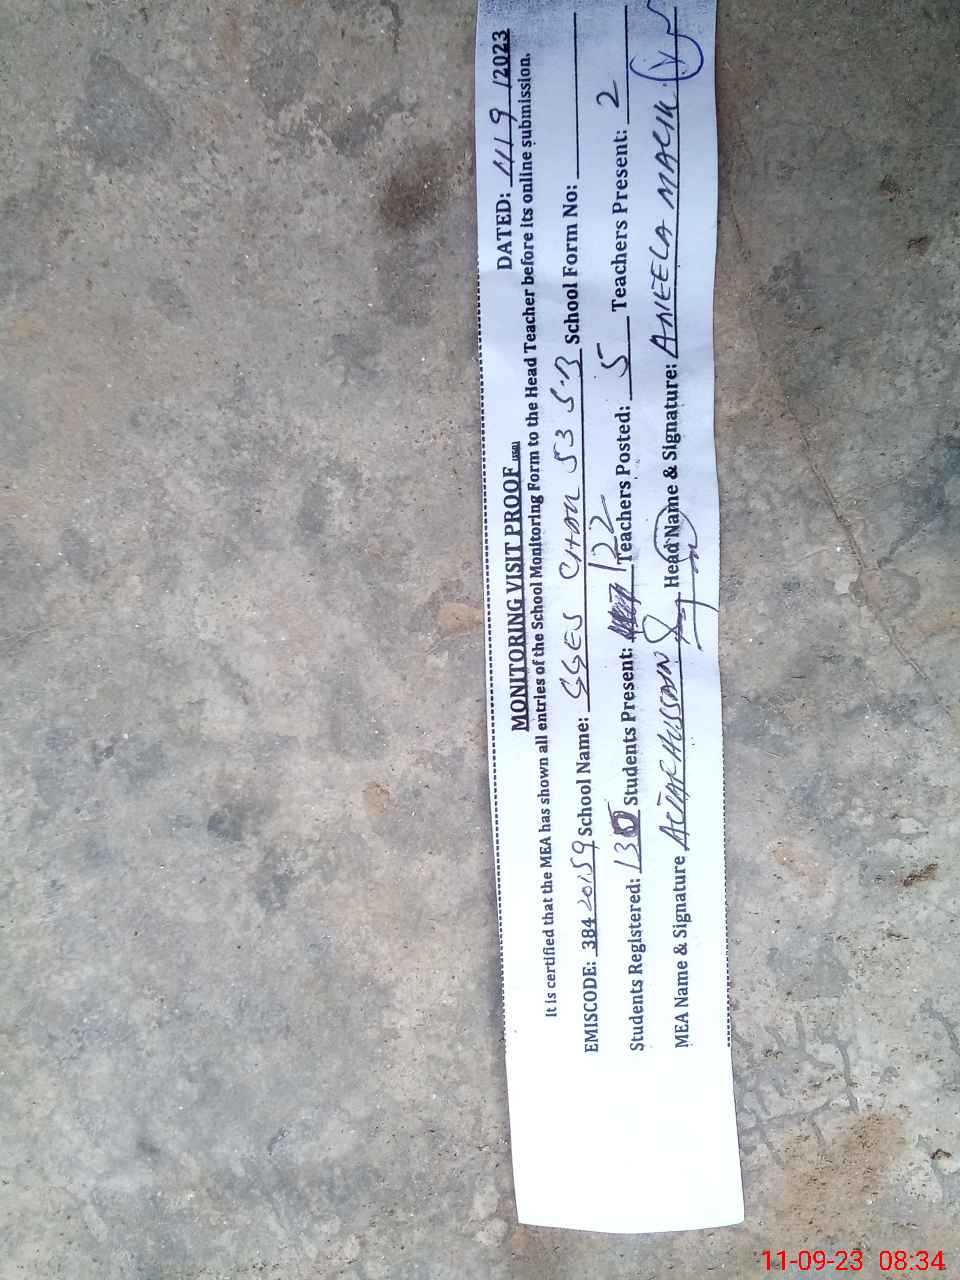 MONITORING VISIT PROOF DATED: 11/9/2023
It is certified that the MEA has shown all entries of the School Monitoring Form to the Head Teacher before its online submission.
EMISCODE: 38420159 School Name: GGES CHAK 53 S.B School Form No:
Students Registered: 130 Students Present: 122 Teachers Posted: 5 Teachers Present: 2
MEA Name & Signature HUSSAIN Head Name & Signature: ANEELA MALIK
11-09-23 08:34